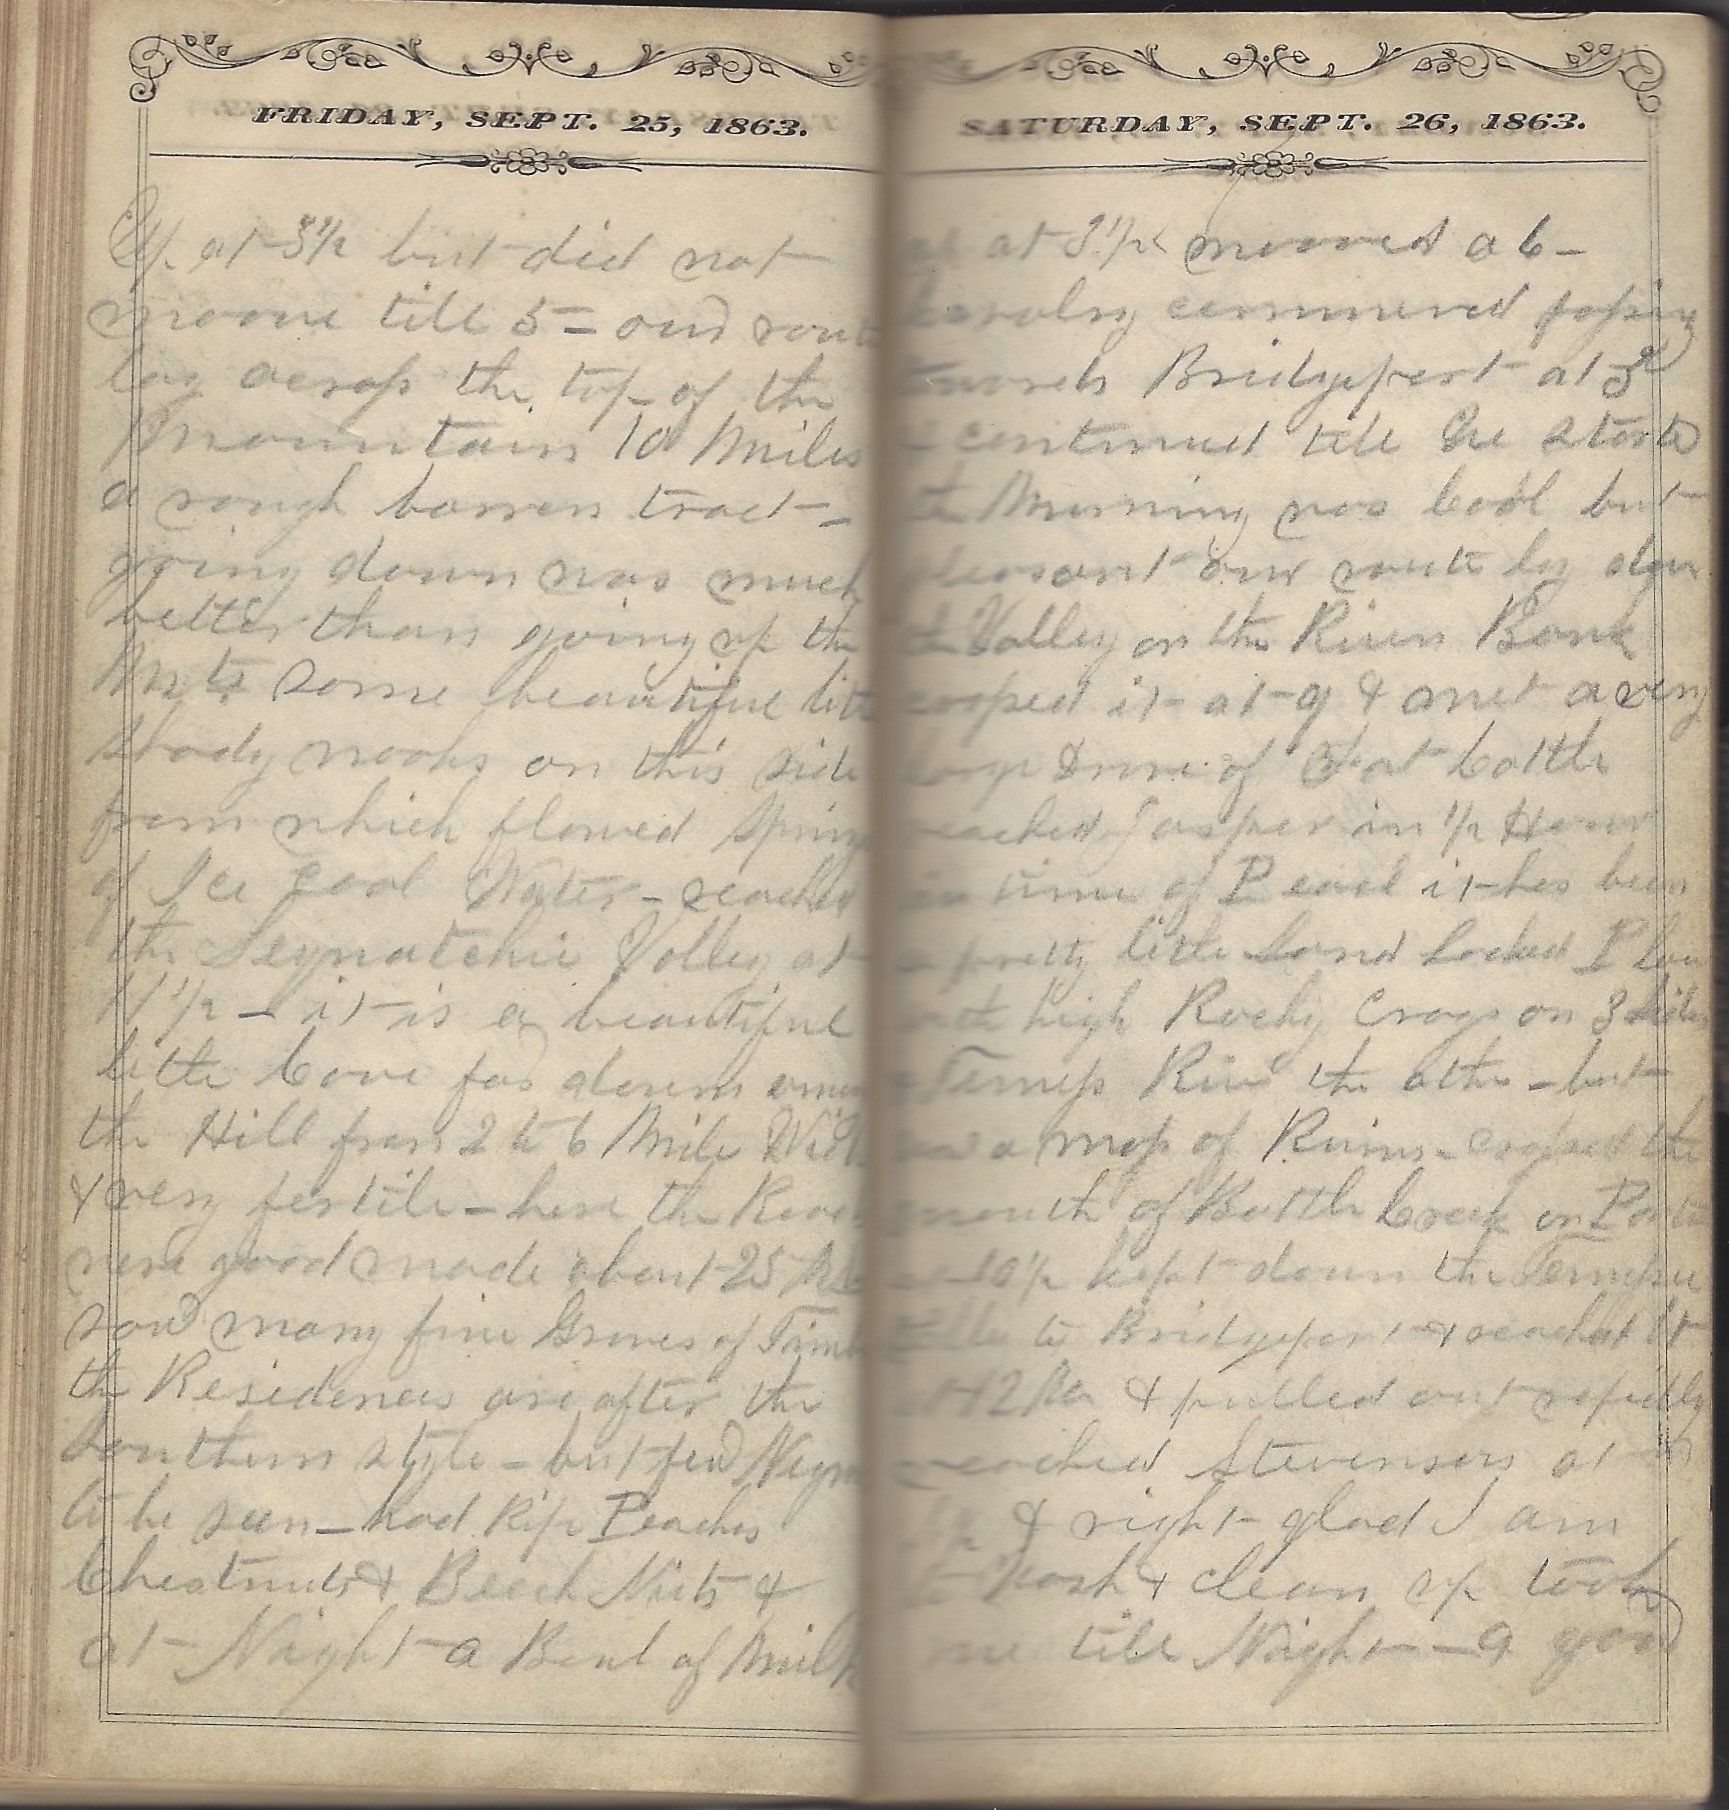 FRIDAY, SEPT. 25, 1863.
Up at 3 1/2 but did not
moove till 5 = our rout
lay acrass the top of the
Mountain 10 Miles
a rough barren tract -
going down was much
better than going up the
Mts some beautiful litt
shady nooks on this side
from which flowed Spring
of Ice Cool Water - reached
the Seqnatchie Valley at
11 1/2 - it is a beautiful
little Cove far down amon
the Hill from 2 to 6 Mile Wide
& very fertile - here the Roads
were good made about 25 Mls
saw many fine Groves of Timb
the Residences are after the
Southern style - but few Negro
to be seen - had Ripe Peaches
Chestnuts & Beech Nuts &
at Night a Bowl of Milk
SATURDAY, SEPT. 26, 1863.
at 3 1/2 mooved a 6 -
Cavalry commenced passing
towards Bridgeport at 3
& continued till We started
the Morning was Cool but
pleasant our route lay down
the Valley on the River Bank
crossed it at 9 & met a very
large Drove of Fat Cattle
reached Jasper in 1/2 Hour
in time of Peace it has been
a pretty little Land Locked Place
with high Rocky Crags on 3 Sides
& Tenness River the other - but
now a mass of Ruins - crossed the
mouth of Battle Creek on
at 10 1/2 kept down the Tennessee
to Bridgeport & reached it
at 12 & pulled out rapidly
reached Stevenson at
& right glad I am
to Wash & clean up took
me till Night - a good